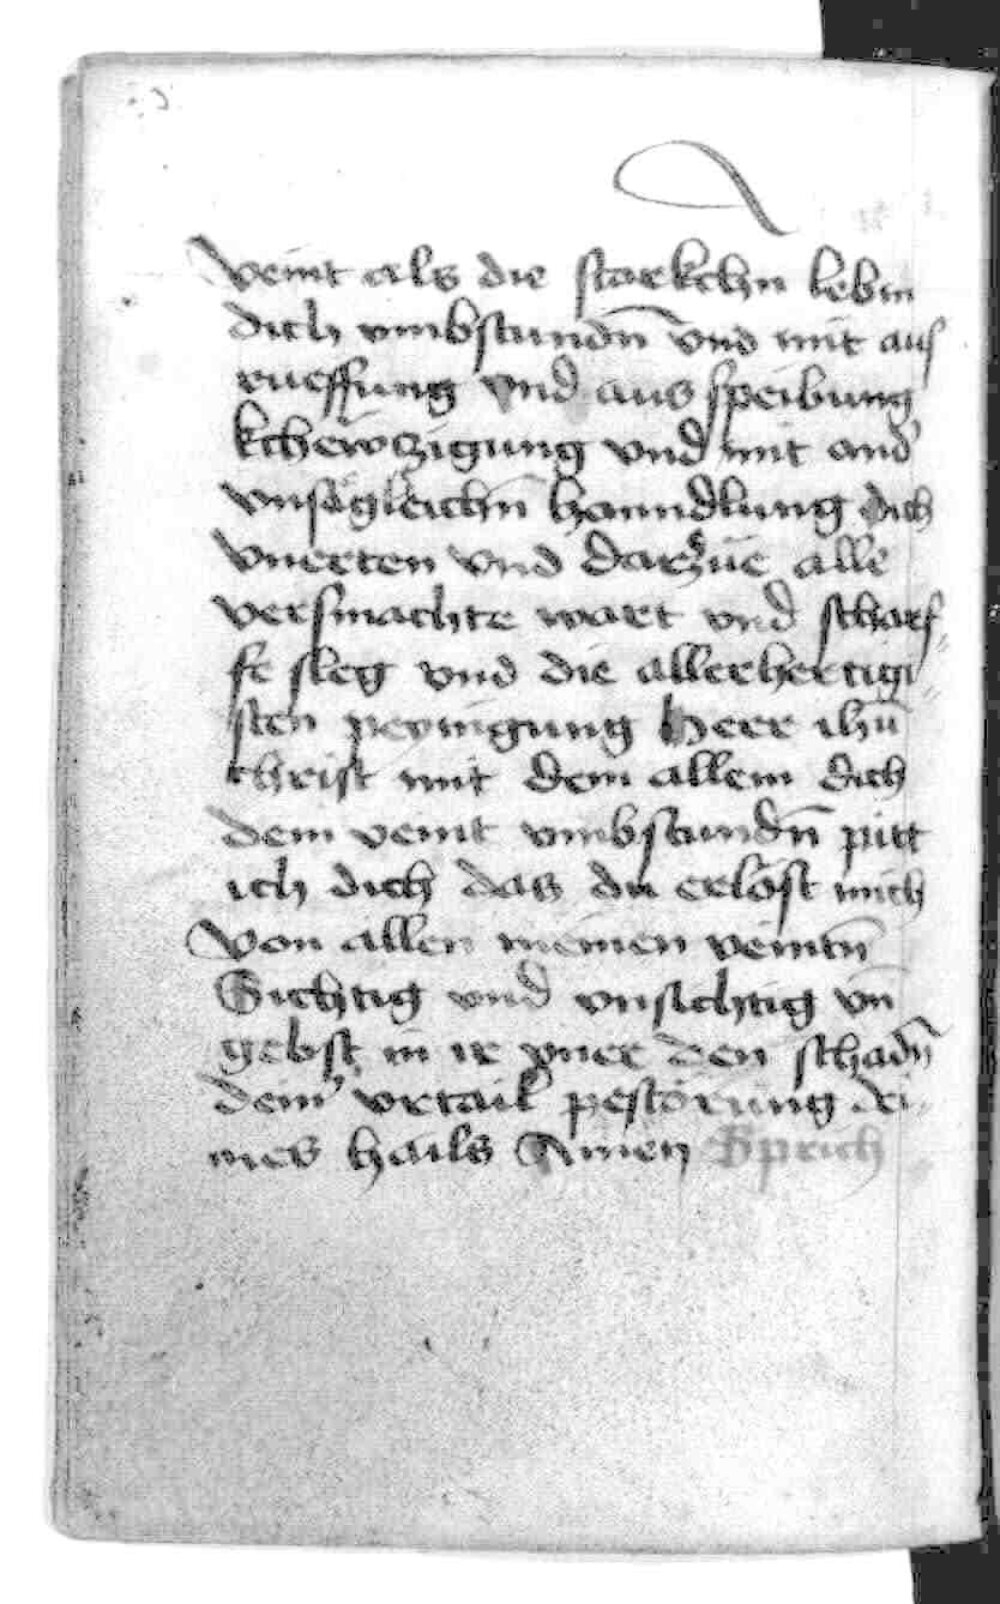 veint als die starkchn lebm
dich vmbstundn̄ vnd mit aus
rueffung vnd aus speibung
kchewczigung vnd mit and̕
vnsägleichn̄ hanndlung dich
vnerten vnd darzue alle
versmachte wart vnd scharf
fe sleg vnd die allerhertigi
sten peynigung herr ihū
christ mit dem allem dich
dem veint vmbstundn̄ pitt
ich dich das du erlöst mich
von allen meinen veintn̄
Sichtig vnd vnsichtig vn̄
gebst in ir yner den schadn̄
dein̕ vrtail pestörung dei
nes hails Amen Sprich